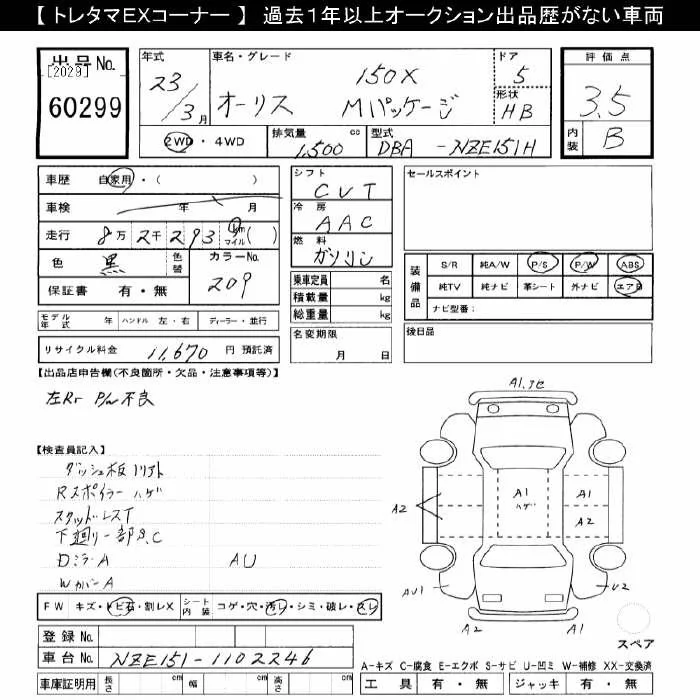 【 トレタマEXコーナー 】 過去1年以上オークション出品歴がない車両
出品No.
[2029]
60299
年式 23/3月
車名・グレード オーリス 150X Mパッケージ
ドア 5
形状 HB
2WD ・ 4WD
排気量 1,500 cc
型式 DBA-NZE151H
評価点 3.5
内装 B
車歴 自家用・( )
車検 年 月
走行 8万2千293 km マイル ( )
色 黒 色替 カラーNo. 209
保証書 有・無
シフト CVT
冷房 AAC
燃料 ガソリン
乗車定員 名
積載量 kg
総重量 kg
セールスポイント
装備品 S/R 純A/W P/S P/W ABS
純TV 純ナビ 革シート 外ナビ エアB
ナビ型番:
モデル年式 年 ハンドル 左・右 ディーラー・並行
リサイクル料金 11,670 円 預託済
名変期限 月 日
後日品
【出品店申告欄(不良箇所・欠品・注意事項等)】
左Rr P/w不良
【検査員記入】
ダッシュ板ソリアト
Rスポイラーハゲ
スタッドレスT
下廻り一部S.C
Dミラ-A AU
WカバーA
FW キズ・トビ石・割レX シート内装 コゲ・穴・汚レ・シミ・破レ・スレ
A1.トビ
A1
ハゲ
A1
A2
A2
AU1
U2
A2
A1
スペア
登録No.
車台No. NZE151-1102246
A-キズ C-腐食 E-エクボ S-サビ U-凹ミ W-補修 XX-交換済
車庫証明用 長さ cm 幅 cm 高さ cm
工具 有・無 ジャッキ 有・無